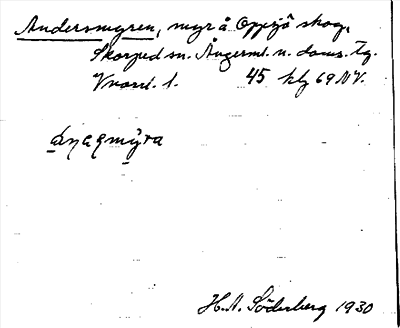 Andersmyren, myr å Oppsjö skog,
Skorped sn. Ångerml. n. doms. tg.
Vvard. 1. 45 klg 69 NV.
H.A. Söderberg 1930